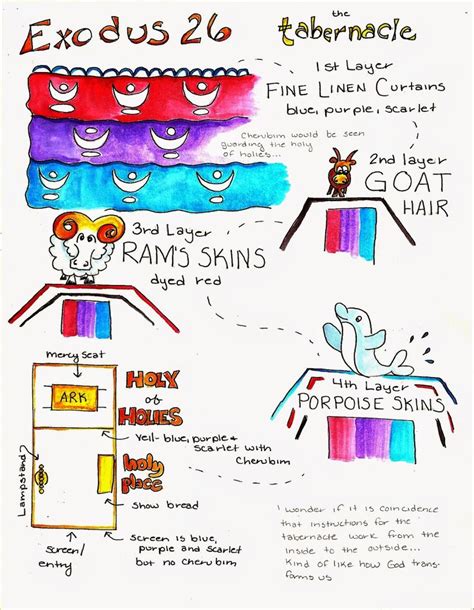 Exodus 26
the
tabernacle
1st Layer
FINE LINEN CURTAINS
blue, purple, scarlet
Cherubim would be seen
guarding the holy
of holies...
2nd layer
GOAT
HAIR
3rd Layer
RAM'S SKINS
dyed red
4th Layer
PORPOISE SKINS
mercy seat
ARK
HOLY
of
HOLIES
Veil-blue, purple &
scarlet with
Cherubim
Holy
Place
Lampstand
show bread
screen/
entry
screen is blue,
purple and scarlet
but no cherubim
I wonder if it is coincidence
that instructions for the
tabernacle work from the
inside to the outside...
Kind of like how God trans-
forms us